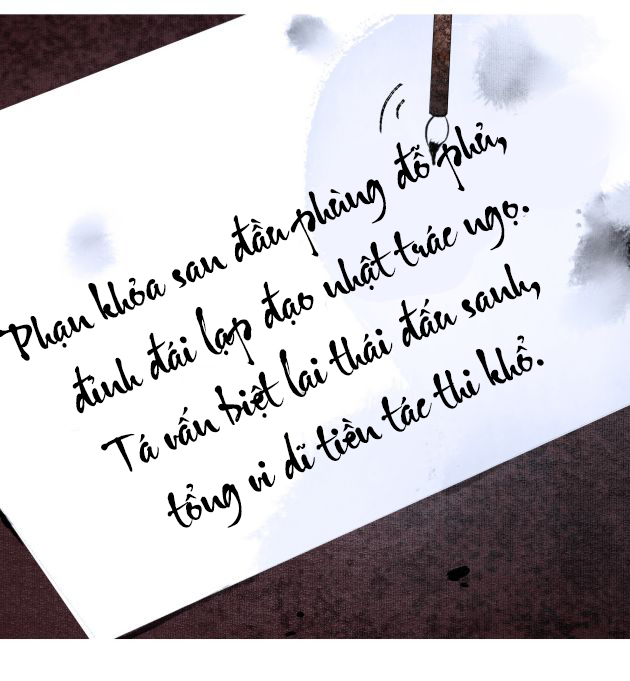 Phạn khỏa san đầu phùng đỗ phủ,
đỉnh đái lạp đạo nhật trác ngọ.
Tá vấn biệt lai thái đấu sanh,
tổng vi dĩ tiền tác thi khổ.